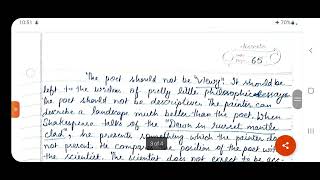 10:51
75%
65
"The poet should not be "viewy". It should be
left to the writers of pretty little philosophic essays
The poet should not be descriptive. The painter can
describe a landscape much better than the poet. When
Shakespeare talks of the "Dawn in russet mantle
clad", he presents something which the painter does
not present. He compares the position of the poet with
the scientist. The scientist does not expect to be
3 of 4